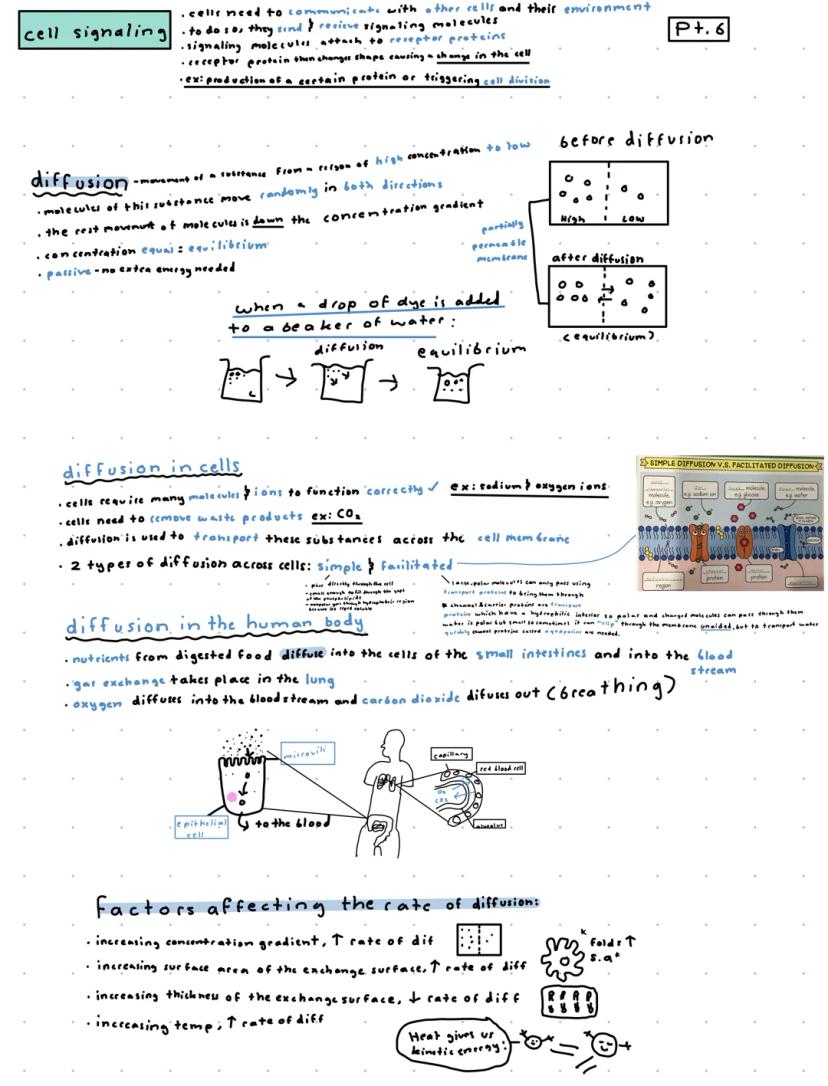 cell signaling
Pt. 6
• cells need to communicate with other cells and their environment
• to do so, they send & recieve signaling molecules
• signaling molecules attach to receptor proteins
• receptor protein then changes shape causing a change in the cell
• ex: production of a certain protein or triggering cell division
diffusion - movement of a substance from a reigon of high concentration to low
• molecules of this substance move randomly in both directions
• the rest movement of molecules is down the concentration gradient
• concentration equal = equilibrium
• passive - no extra energy needed
before diffusion
High Low
partially
permeable
membrane
after diffusion
(equilibrium)
when a drop of dye is added
to a beaker of water:
diffusion
equilibrium
diffusion in cells
• cells require many molecules & ions to function correctly ✓ ex: sodium & oxygen ions
• cells need to remove waste products ex: CO₂
• diffusion is used to transport these substances across the cell membrane
• 2 types of diffusion across cells: simple & facilitated
directly through the cell
Large, polar molecules can only pass using
transport proteins to bring them through
* channel & carrier proteins are transport
proteins which have a hydrophilic interior so polar and charged molecules can pass through them
water is polar but small so sometimes it can "slip" through the membrane unaided, but to transport water
quickly channel proteins called aquaporins are needed.
SIMPLE DIFFUSION V.S. FACILITATED DIFFUSION
molecule,
e.g. oxygen
e.g. sodium ion
molecule
e.g. glucose
molecule
e.g. water
region
protein
protein
diffusion in the human body
• nutrients from digested food diffuse into the cells of the small intestines and into the blood
stream
• gas exchange takes place in the lung
• oxygen diffuses into the bloodstream and carbon dioxide difuses out (breathing)
microvili
epithelial
cell
to the blood
capillary
red blood cell
O₂
CO₂
alveolus
Factors affecting the rate of diffusion:
• increasing concentration gradient, ↑ rate of dif
• increasing surface area of the exchange surface, ↑ rate of diff
* folds ↑
s.a*
• increasing thickness of the exchange surface, ↓ rate of diff
• increasing temp, ↑ rate of diff
Heat gives us
kinetic energy!